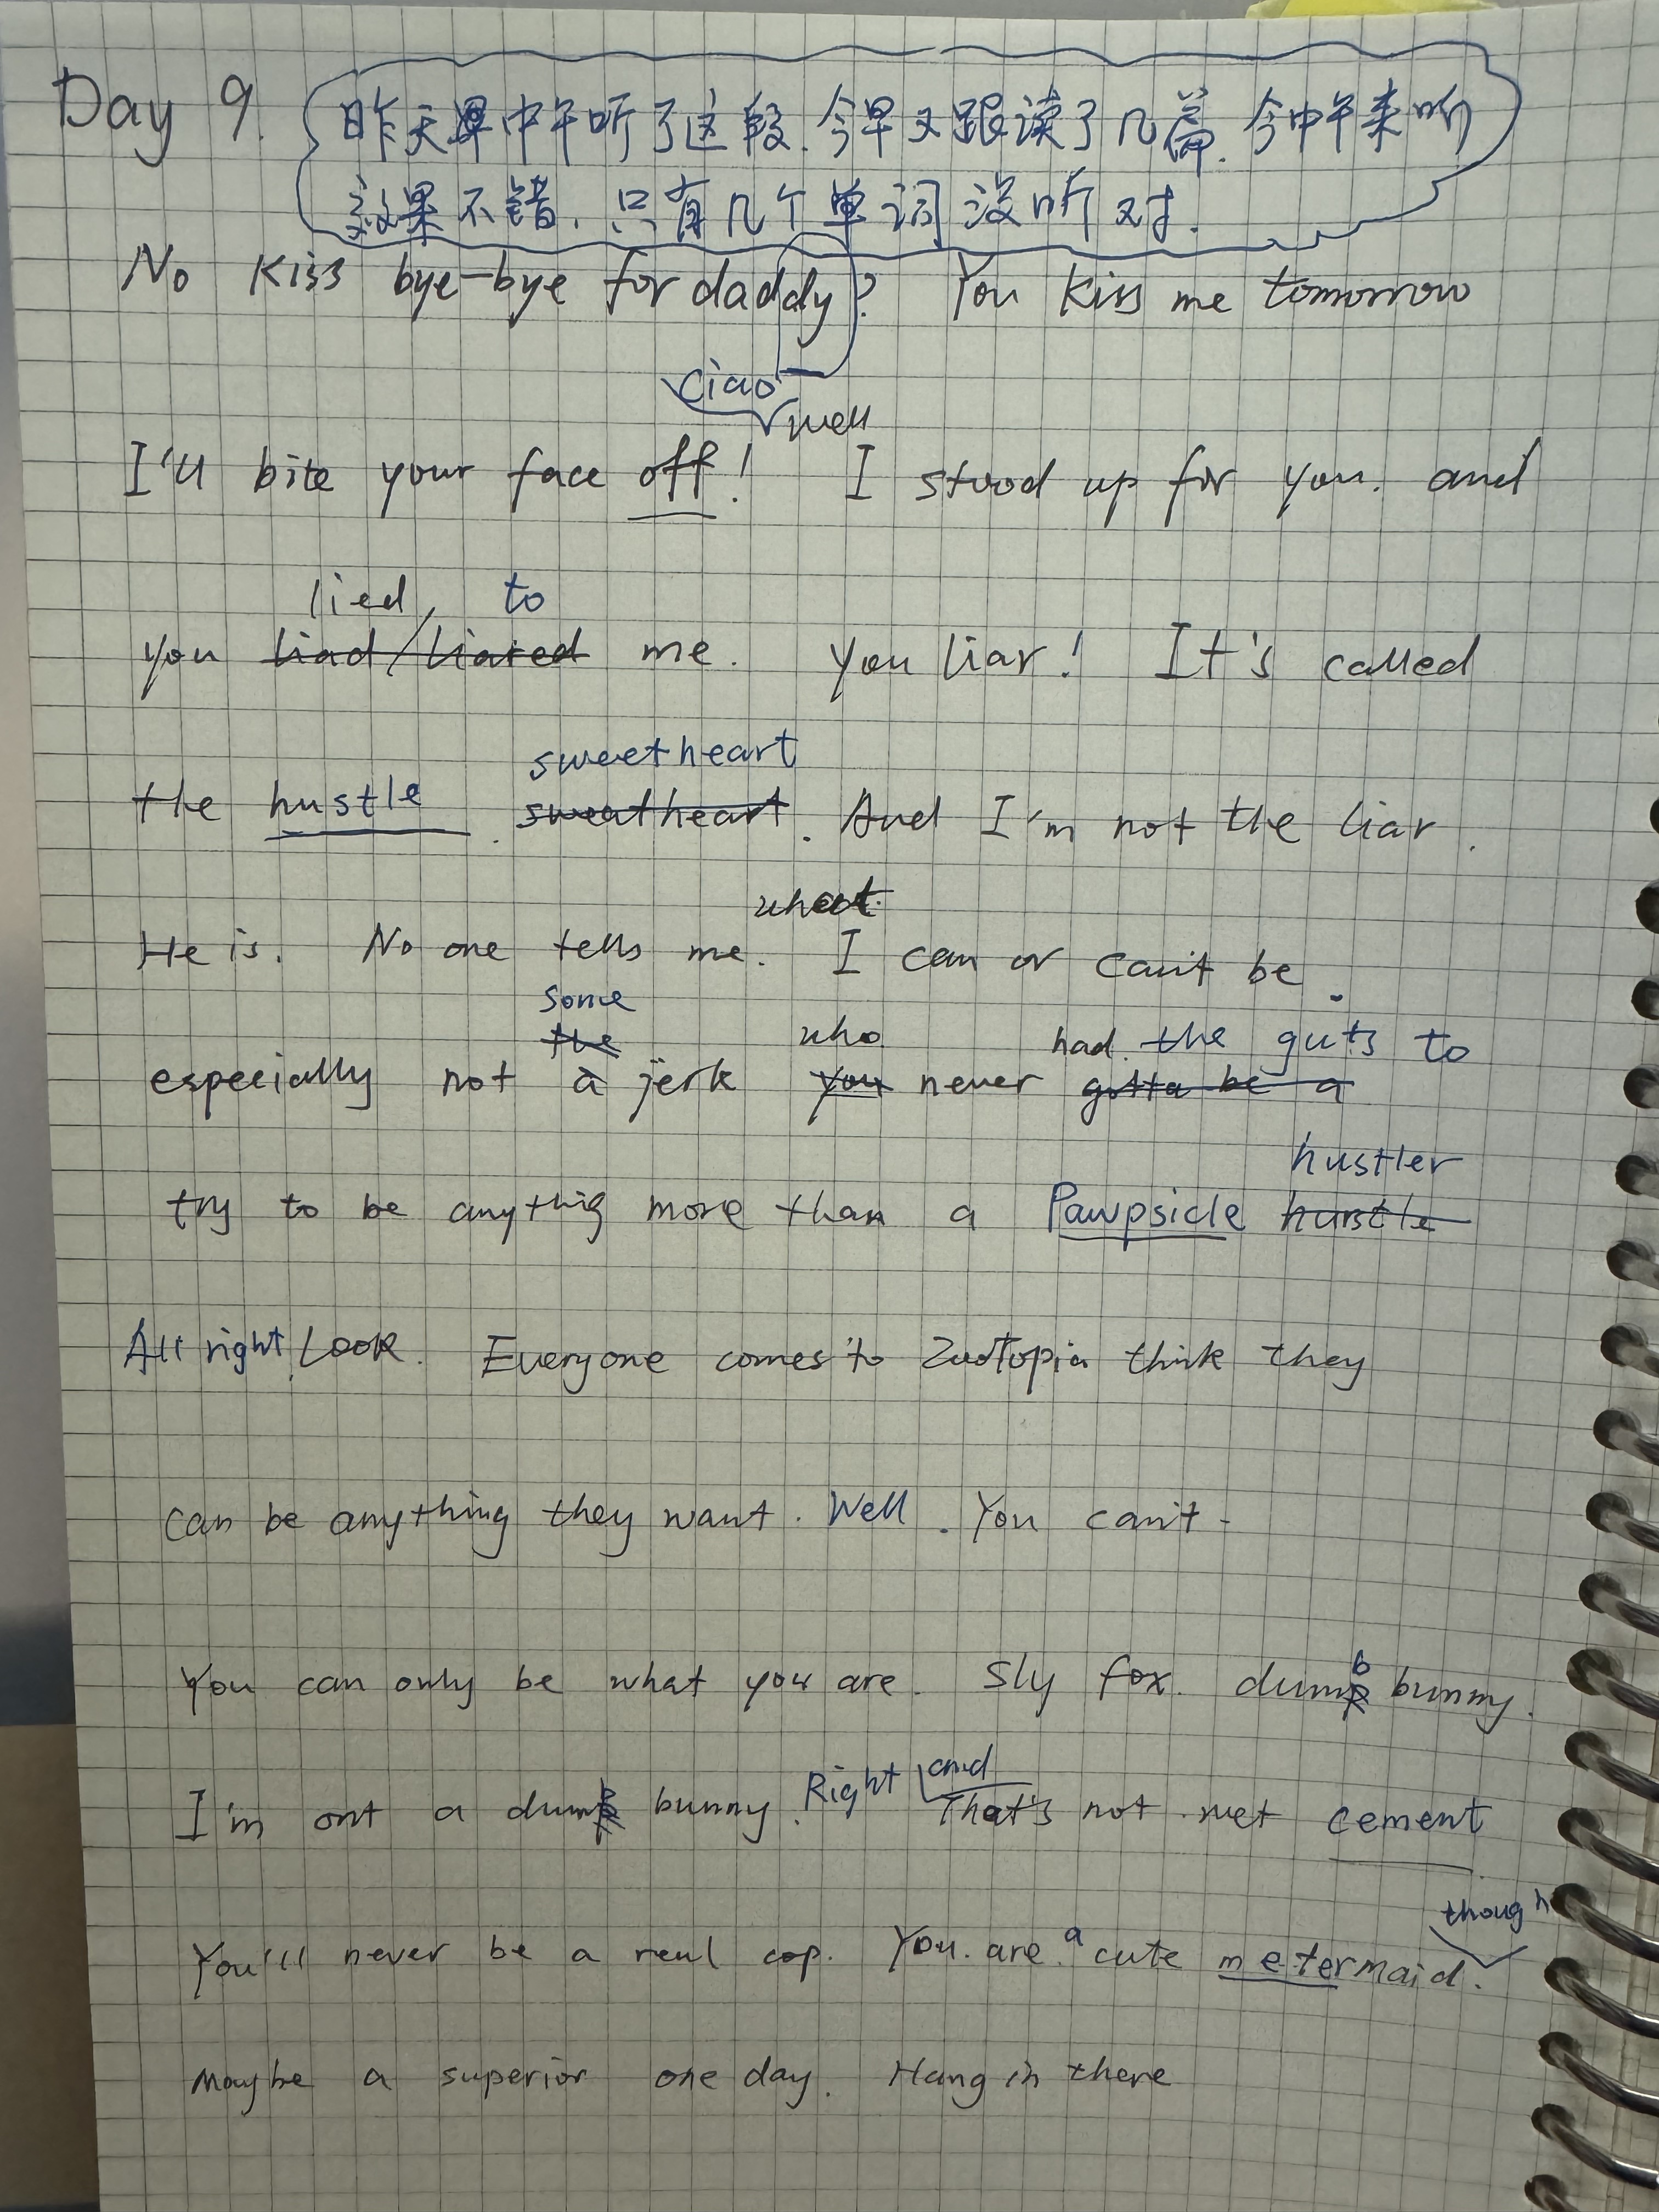 Day 9. 昨天中午听了这段.今早又跟读了几篇.今中午来听
效果不错.只有几个单词没听对.
No kiss bye-bye for daddy? You kiss me tomorrow
ciao
well
I'll bite your face off! I stood up for you. and
lied, to
you liad/liared me. You liar! It's called
sweetheart
the hustle. sweatheart. And I'm not the liar.
what
He is. No one tells me. I can or can't be.
some
the who had the guts to
especially not a jerk you never gotta be a
hustler
try to be anything more than a Pawpsicle hustle
All right, Look. Everyone comes to Zootopia think they
can be anything they want. Well. You can't-
You can only be what you are. Sly fox. dumb bunny.
Right and
I'm ont a dum bunny. That's not wet cement
though
You'll never be a real cop. You are a cute metermaid.
Maybe a superior one day. Hang in there